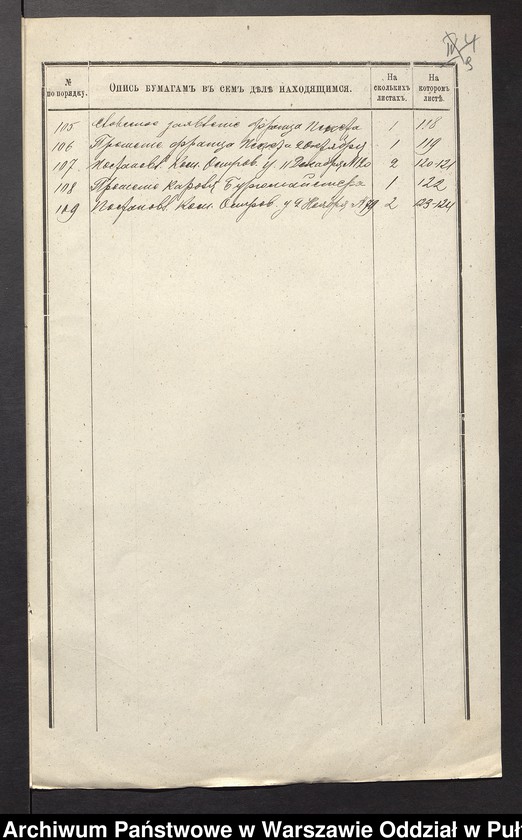 4
3
№ по порядку.
Опись бумагамъ въ семъ дѣлѣ находящимся.
На сколькихъ листахъ.
На которомъ листѣ.
105 заявленіе Франца 1 118
106 Прошеніе Франца 1 119
107 Постановл. Ком. Остров. у. 11 Декабря № 20 2 120-121
108 Прошеніе Кароля Бургомайстера 1 122
109 Постановл. Ком. Остров. у. 4 Ноября № 2 123-124
Archiwum Państwowe w Warszawie Oddział w Puł